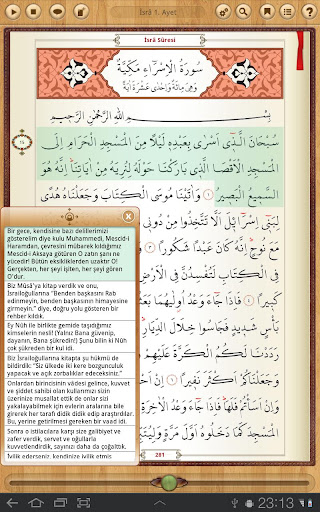 İsrâ 1. Ayet
İsrâ Sûresi
سُورَةُ الْاِسْرَٓاءِ مَكِّيَّةٌ
وَهِيَ مِائَةٌ وَاِحْدٰى عَشْرَةَ اٰيَةً
بِسْمِ اللّٰهِ الرَّحْمٰنِ الرَّحِيمِ
سُبْحَانَ الَّذ۪ٓي اَسْرٰى بِعَبْدِه۪ لَيْلًا مِنَ الْمَسْجِدِ الْحَرَامِ اِلَى
الْمَسْجِدِ الْاَقْصَا الَّذ۪ي بَارَكْنَا حَوْلَهُ لِنُرِيَهُ مِنْ اٰيَاتِنَاۜ اِنَّهُ هُوَ
السَّم۪يعُ الْبَص۪يرُ ١ وَاٰتَيْنَا مُوسَى الْكِتَابَ وَجَعَلْنَاهُ هُدًى
لِبَن۪ٓي اِسْرَٓاء۪يلَ اَلَّا تَتَّخِذُوا مِنْ
مَعَ نُوحٍۜ اِنَّهُ كَانَ عَبْدًا شَكُورًا
فِي الْكِتَابِ لَتُفْسِدُنَّ فِي
كَب۪يرًا فَاِذَا جَٓاءَ وَعْدُ
بَأْسٍ شَد۪يدٍ فَجَاسُوا خِلَالَ الدِّيَارِ
لَكُمُ الْكَرَّةَ
وَجَعَلْنَاكُمْ اَكْثَرَ نَف۪يرًا
وَاِنْ اَسَأْتُمْ فَلَهَاۜ فَاِذَا جَٓاءَ
الْمَسْجِدَ كَمَا دَخَلُوهُ اَوَّلَ مَرَّةٍ
Bir gece, kendisine bazı delillerimizi
gösterelim diye kulu Muhammedi, Mescid-i
Haramdan, çevresini mübarek kıldığımız
Mescid-i Aksaya götüren O zatın şanı ne
yücedir! Bütün eksikliklerden uzaktır O!
Gerçekten, her şeyi işiten, her şeyi gören
O'dur.
Biz Mûsâ'ya kitap verdik ve onu,
İsrailoğullarına "Benden başkasını Rab
edinmeyin, benden başkasının himayesine
girmeyin." diye, doğru yolu gösteren bir
rehber kıldık.
Ey Nûh ile birlikte gemide taşıdığımız
kimselerin nesli! (Yalnız Bana güvenip,
dayanın, Bana şükredin!) Şunu bilin ki Nûh
çok şükreden bir kul idi.
Biz İsrailoğullarına kitapta şu hükmü de
bildirdik: "Siz ülkede iki kere bozgunculuk
yapacak ve açık zorbalıklar edeceksiniz."
Onlardan birincisinin vâdesi gelince, kuvvet
ve şiddet sahibi olan kullarımızı sizin
üzerinize musallat ettik de onlar sizi
yakalayabilmek için evlerin aralarına bile
girerek her tarafı didik didik edip araştırdılar.
Bu, yerine getirilmesi gereken bir vaad idi.
Sonra o istilacılara karşı size galibiyet ve
zafer verdik, servet ve oğullarla
kuvvetlendirdik, sayınızı daha da çoğalttık.
İyilik ederseniz, kendinize iyilik etmiş
281
23:13